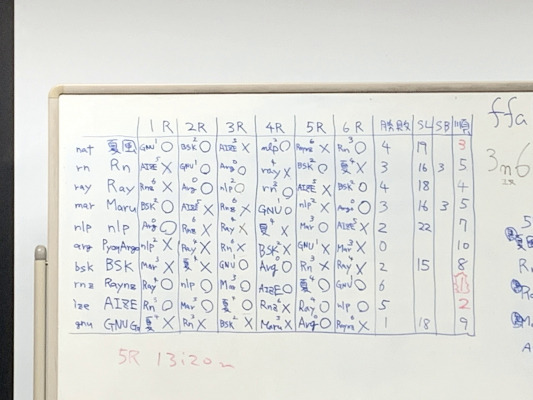 1R 2R 3R 4R 5R 6R 勝敗 SL SB 順
nat 夏風 GNU ○ BSK ○ AIZE × nlp ○ Raynz × Rn ○ 4 19 3
rn Rn AIZE × GNU ○ Arg ○ ray × BSK ○ 夏 × 3 16 3 5
ray Ray Rnz × Arg ○ nlp ○ rn ○ AIZE × BSK ○ 4 18 4
mar Maru BSK ○ AIZE × Rnz × GNU ○ nlp × Arg ○ 3 16 3 5
nlp nlp Arg ○ Rnz × Ray × 夏 × Mar ○ AIZE × 2 22 7
arg PyaqArgo nlp × Ray × Rn × BSK × GNU × Mar × 0 10
bsk BSK Mar × 夏 × GNU ○ Arg ○ Rn × Ray × 2 15 8
rnz Raynz Ray ○ nlp ○ Mar ○ AIZE ○ 夏 ○ GNU ○ 6
ize AIZE Rn ○ Mar ○ 夏 ○ Rnz × Ray ○ nlp ○ 5 2
gnu GNU Go 夏 × Rn × BSK × Maru × Arg ○ Raynz × 1 18 9
5R 13:20~
ffa